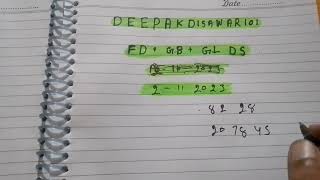 Date
DEEPAKDISAWAR101
FD + GB + GL DS
2 - 11 2023
82 28
20 78 45